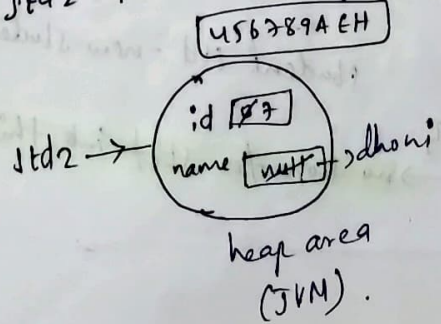 std2
456789AEH
id 07
std2 → name null → dhoni
heap area
(JVM).